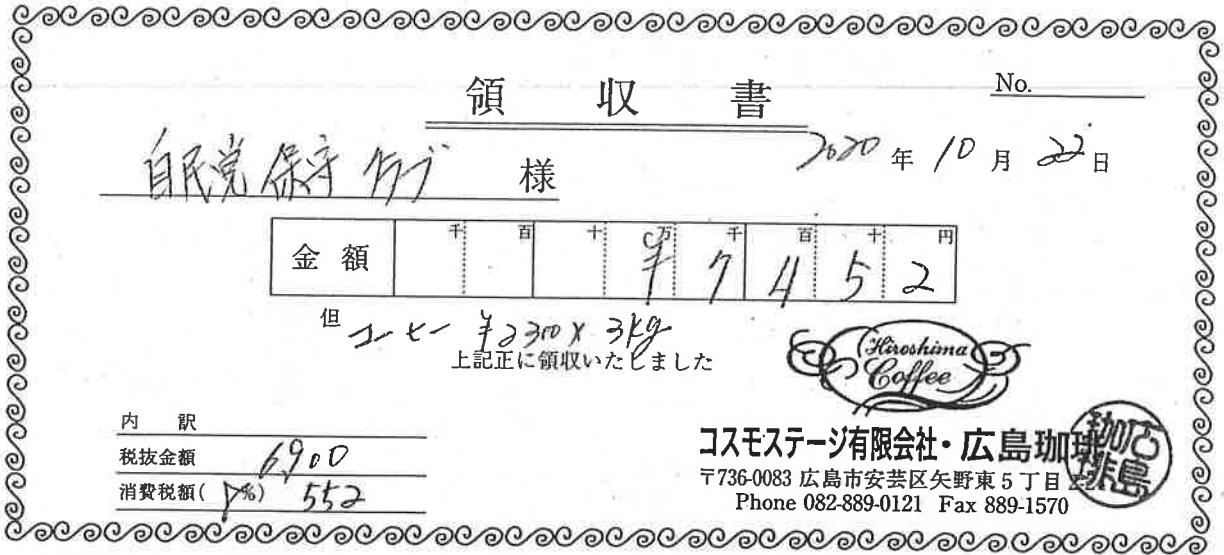 領収書
No.
自民党 保守クラブ 様
2020年10月22日
千 百 十 万 千 百 十 円
金額 ¥7452
但 コーヒー ¥2300×3kg
上記正に領収いたしました
Hiroshima
Coffee
内訳
税抜金額 6900
消費税額( 8%) 552
コスモステージ有限会社・広島珈琲
〒736-0083 広島市安芸区矢野東5丁目
Phone 082-889-0121 Fax 889-1570
広島珈琲